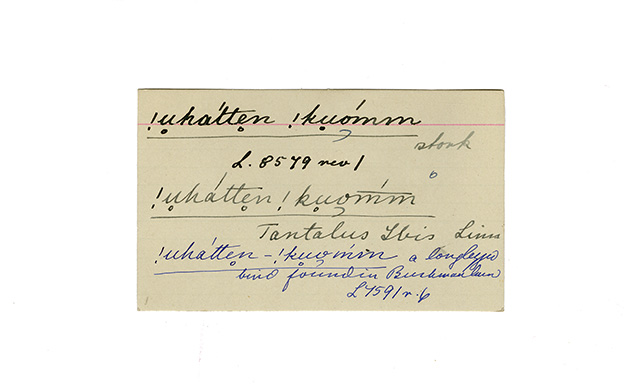 !ụhátte̥n !kụó̥mm
stork
L. 8579 rev /
!ụhátte̥n !kụó̥mm
Tantalus Ibis Linn
!ụhátte̥n - !kụó̥mm a longlegged
bird found in Bushmanland
L 4591 r. 6